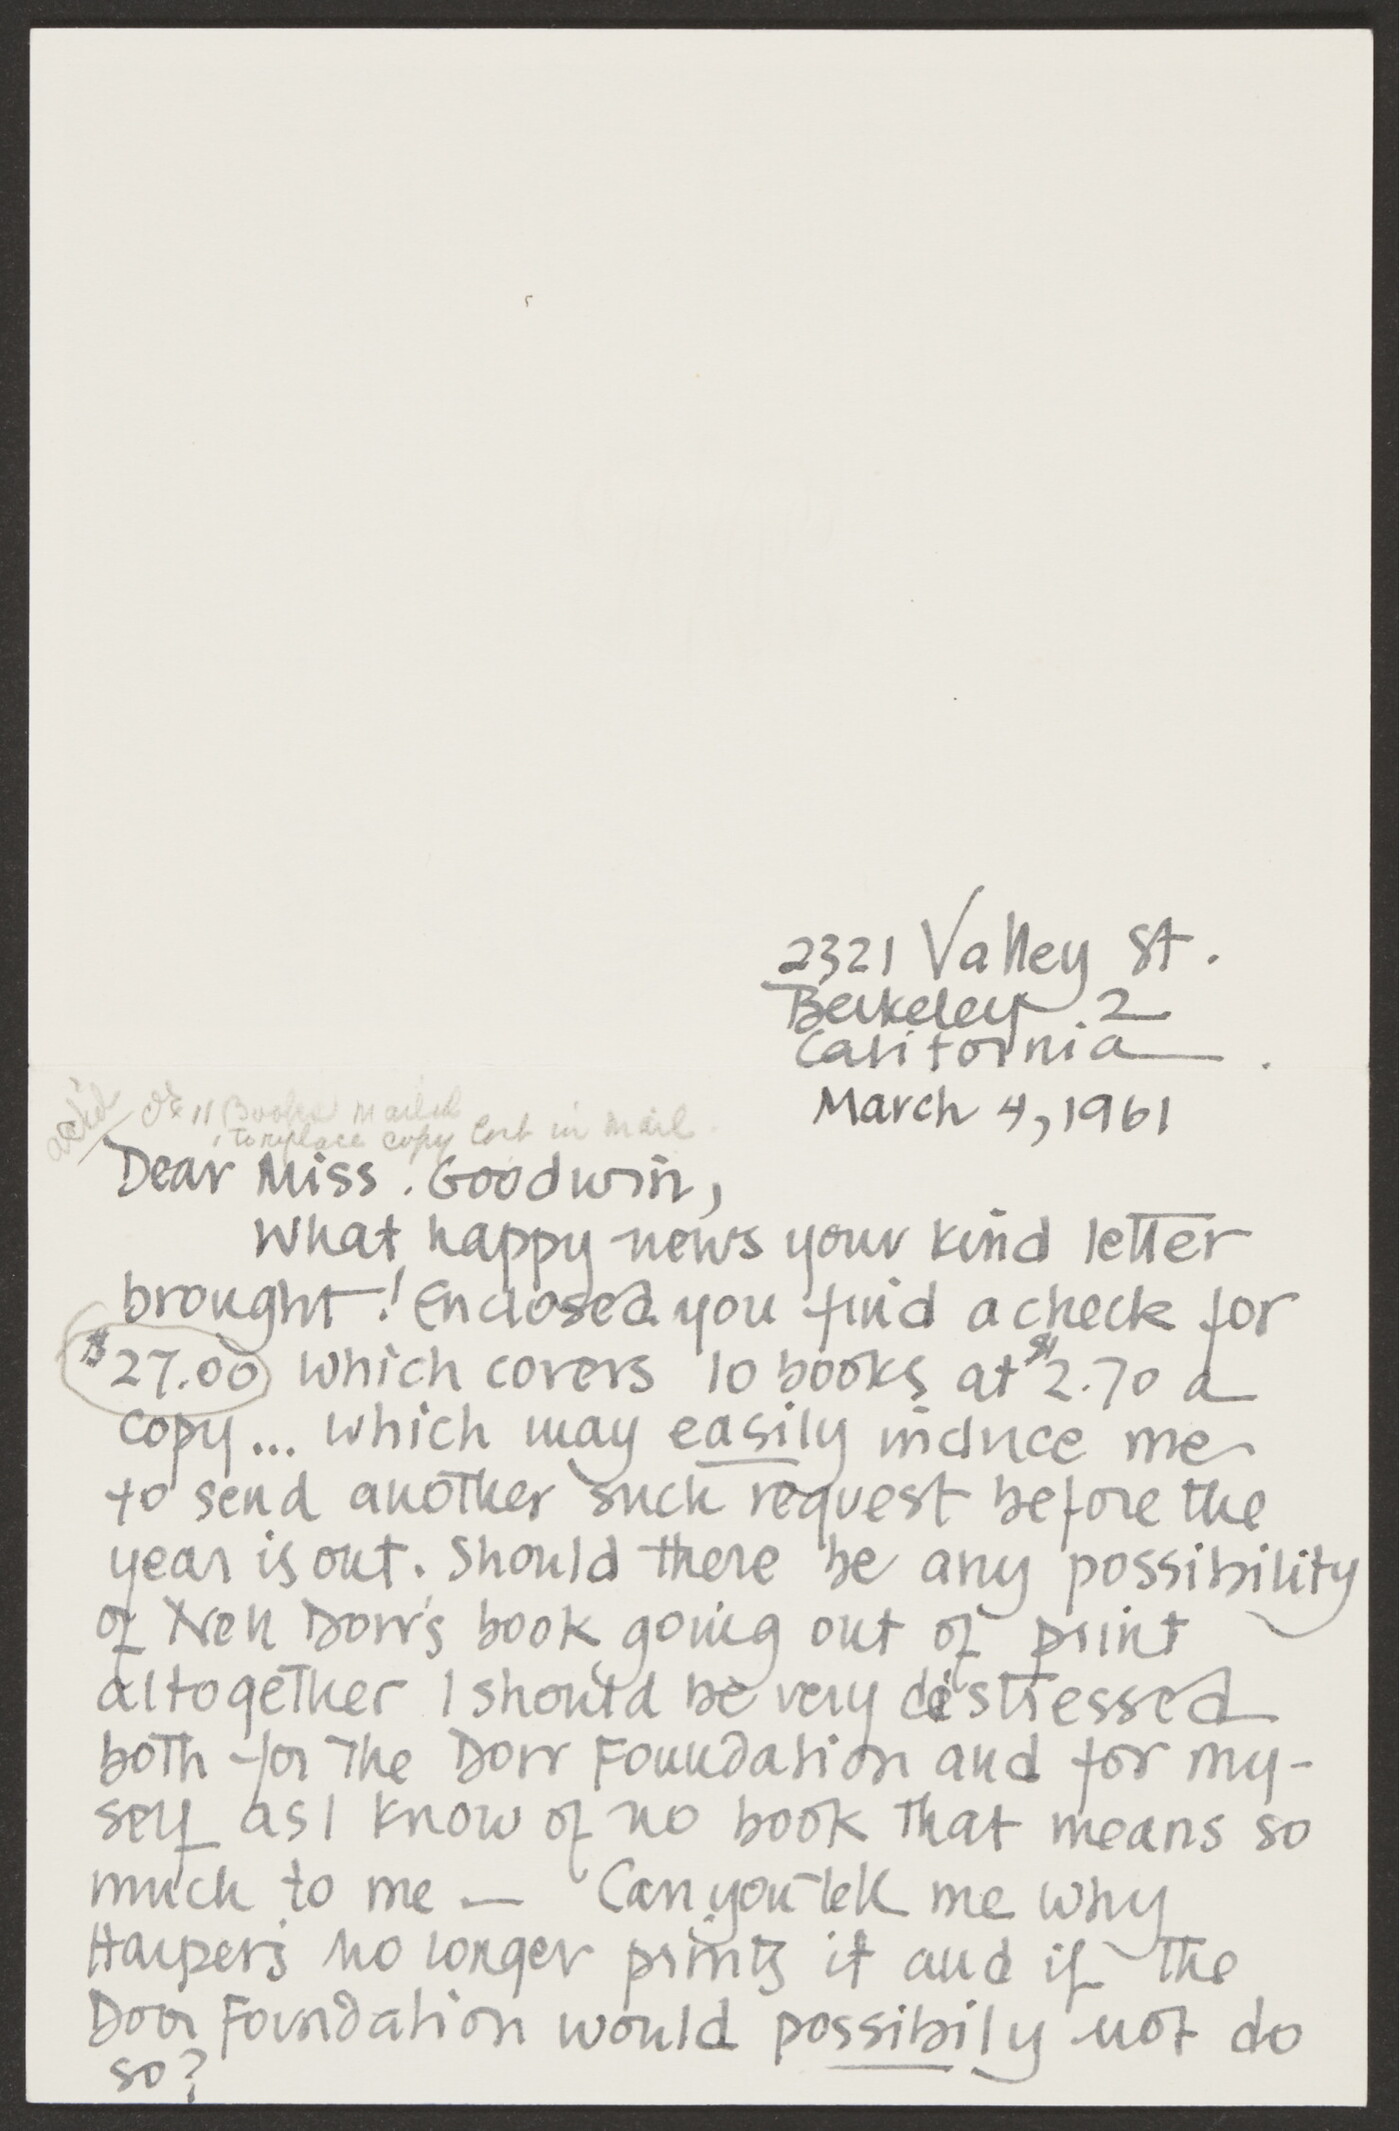 2321 Valley St.
Berkeley 2
California
March 4, 1961
ack'd
OK 11 Books mailed
1 to replace copy lost in mail.
Dear Miss. Goodwin,
What happy news your kind letter
brought! Enclosed you find a check for
$27.00 which covers 10 books at $2.70 a
copy... which may easily induce me
to send another such request before the
year is out. Should there be any possibility
of Nell Dorr's book going out of print
altogether I should be very distressed
both for The Dorr Foundation and for my-
self as I know of no book that means so
much to me — Can you tell me why
Harper's no longer prints it and if the
Dorr Foundation would possibily not do
so?